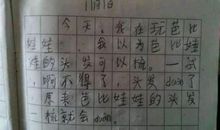 11月1日
今天，我在玩芭比
娃娃，我以为芭比娃
娃的头发可以梳。一试
，啊不得了，头发duan了
，原来芭比娃娃的头发
一梳就会duan。